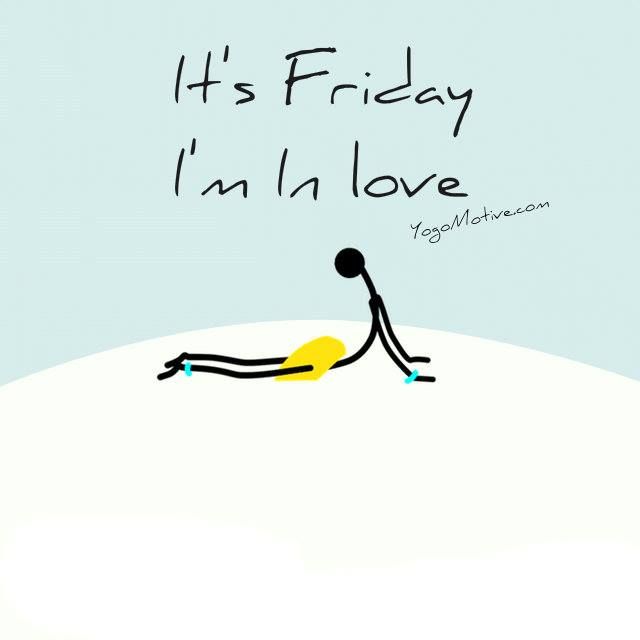 It's Friday
I'm In love
YogoMotive.com